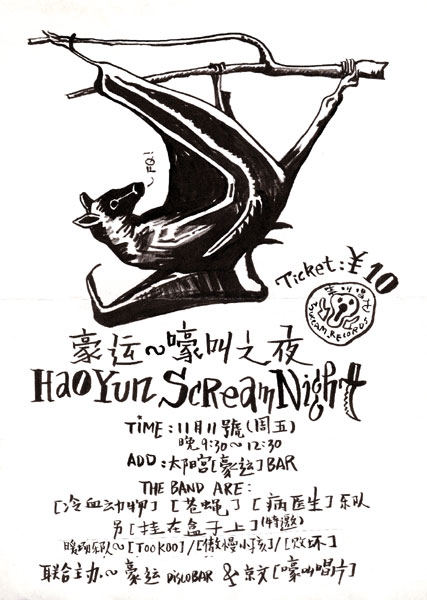 FQ!
Ticket: ¥10
嚎叫唱片
SCREAM RECORDS
豪运~嚎叫之夜
HaoYun ScReam Night
TiME: 11月11號(周五)
晚 9:30~12:30
ADD: 太阳宫[豪运]BAR
THE BAND ARE:
[冷血动物] [苍蝇] [病医生] 乐队
另[挂在盒子上](特邀)
暖场乐队~[TOOKOO]/[傲慢小孩]/[败坏]
联合主办~豪运 DISCO BAR & 京文[嚎叫唱片]